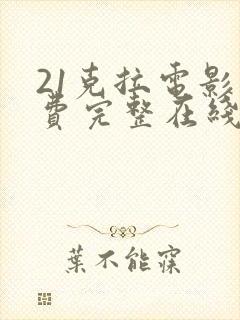 21克拉電影
費完整在綫
葉不能寐